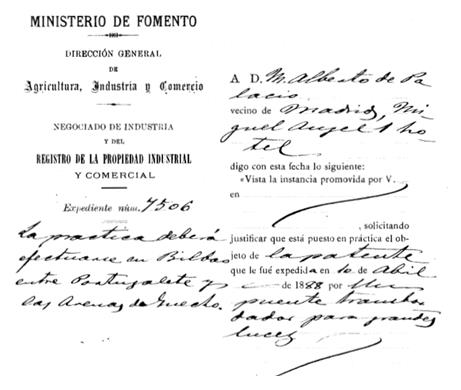 MINISTERIO DE FOMENTO
DIRECCIÓN GENERAL
DE
Agricultura, Industria y Comercio
NEGOCIADO DE INDUSTRIA
Y DEL
REGISTRO DE LA PROPIEDAD INDUSTRIAL
Y COMERCIAL
Expediente núm. 7506
La practica deberá
efectuarse en Bilbao
entre Portugalete y
las Arenas de Guecho.
A D. M. Alberto de Pa
lacio
vecino de Madrid, Mi
guel Angel 1 ho
tel
digo con esta fecha lo siguiente:
«Vista la instancia promovida por V.
en
, solicitando
justificar que está puesto en práctica el ob-
jeto de la patente
que le fué expedida en 10 de Abril
de 1888 por Un
puente transbor
dador para grandes
luces